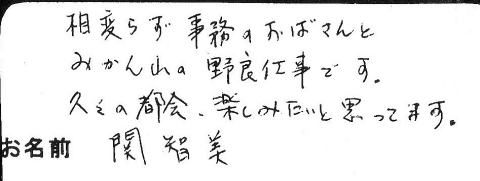 相変らず事務のおばさんと
みかん山の野良仕事です。
久々の都会、楽しみたいと思ってます。
お名前 関智美